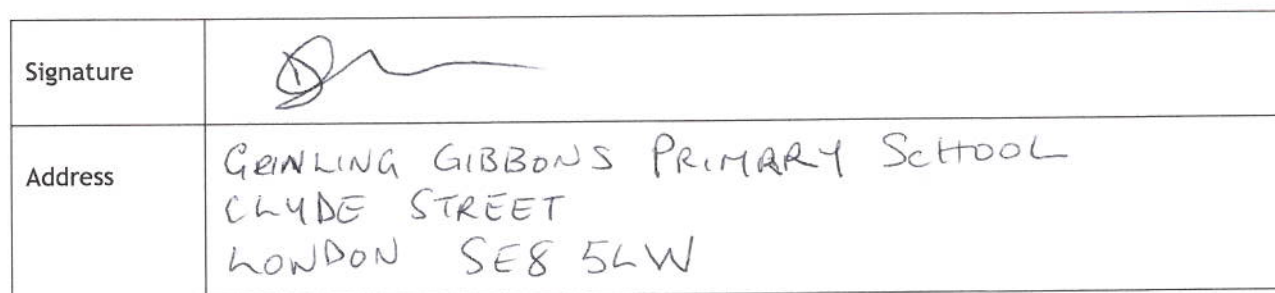 Signature
Address
GRINLING GIBBONS PRIMARY SCHOOL
CLYDE STREET
LONDON SE8 5LW